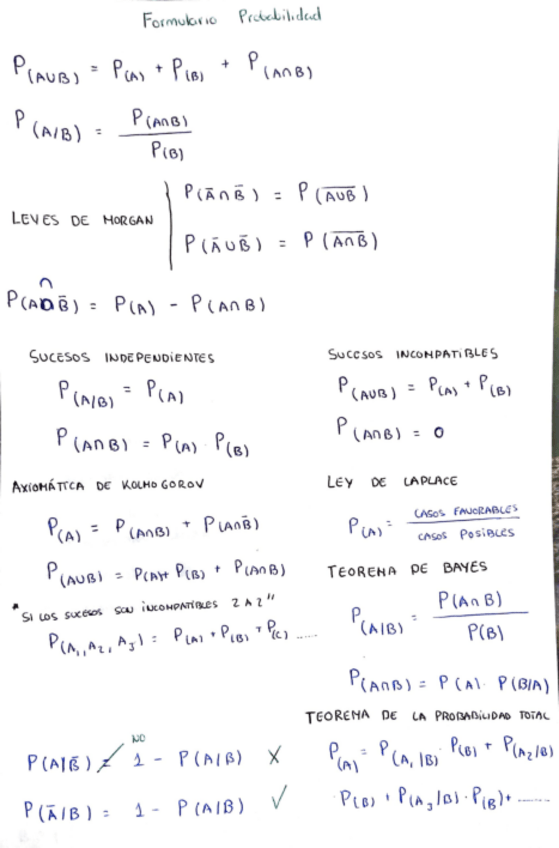 Formulario Probabilidad
P(A∪B) = P(A) + P(B) + P(A∩B)
P(A/B) = P(A∩B) / P(B)
LEYES DE MORGAN
P(Ā∩B̄) = P(A∪B)̅
P(Ā∪B̄) = P(A∩B)̅
∩
P(A B̄) = P(A) - P(A∩B)
SUCESOS INDEPENDIENTES
P(A/B) = P(A)
P(A∩B) = P(A) · P(B)
SUCESOS INCOMPATIBLES
P(A∪B) = P(A) + P(B)
P(A∩B) = 0
AXIOMÁTICA DE KOLMOGOROV
P(A) = P(A∩B) + P(A∩B̄)
P(A∪B) = P(A)+ P(B) + P(A∩B)
"SI LOS SUCESOS SON INCOMPATIBLES 2 A 2"
P(A₁, A₂, A₃) = P(A) + P(B) + P(C) .....
LEY DE LAPLACE
P(A) = CASOS FAVORABLES / CASOS POSIBLES
TEOREMA DE BAYES
P(A|B) = P(A∩B) / P(B)
P(A∩B) = P(A) · P(B/A)
TEOREMA DE LA PROBABILIDAD TOTAL
P(A) = P(A₁|B) · P(B) + P(A₂|B)
· P(B) + P(A₃|B) · P(B) + .......
NO
P(A|B̄) ≠ 1 - P(A|B) X
P(Ā|B) = 1 - P(A|B) ✓